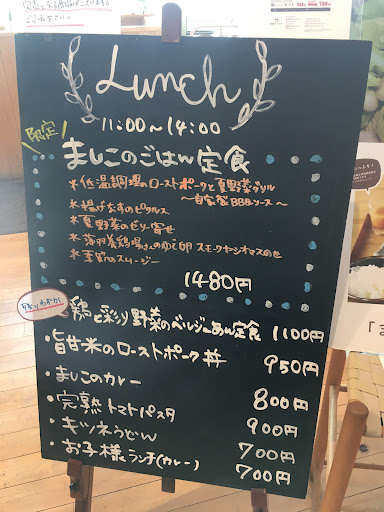 Lunch
11:00〜14:00
限定
ましこのごはん定食
*低温調理のローストポークと夏野菜グリル
〜自家製BBQソース〜
*揚げなすのピクルス
*夏野菜のゼリー寄せ
*薄羽養鶏場さんのゆで卵 スモークヤシオマスのせ
*季節のスムージー
1480円
残りわずか
・鶏と彩り野菜のベジーあん定食 1100円
・旨甘米のローストポーク丼 950円
・ましこのカレー 800円
・完熟トマトパスタ 900円
・キツネうどん 700円
・お子様ランチ(カレー) 700円